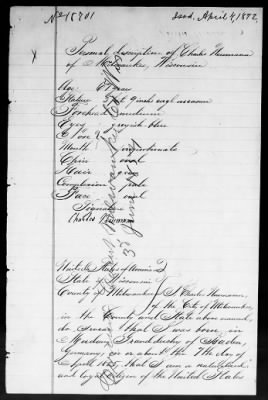 No 15701
Issd. April 4, 1872.
Personal description of Charles Neumann
of Milwaukee, Wisconsin
Age 67 years
Stature 5 feet 9 inch engl. measure
Forehead medium
Eyes greyish blue
Nose
Mouth proportionate
Chin oval
Hair grey
Complexion pale
Face oval
Signature
Charles Neumann
United States of America
State of Wisconsin
County of Milwaukee I Charles Neumann,
of the City of Milwaukee,
in the County and State above named,
do swear, that I was born, in
Grandduchy of Baden,
Germany, on or about the 7th day of
April 1805, that I am a naturalized
and loyal citizen of the United States